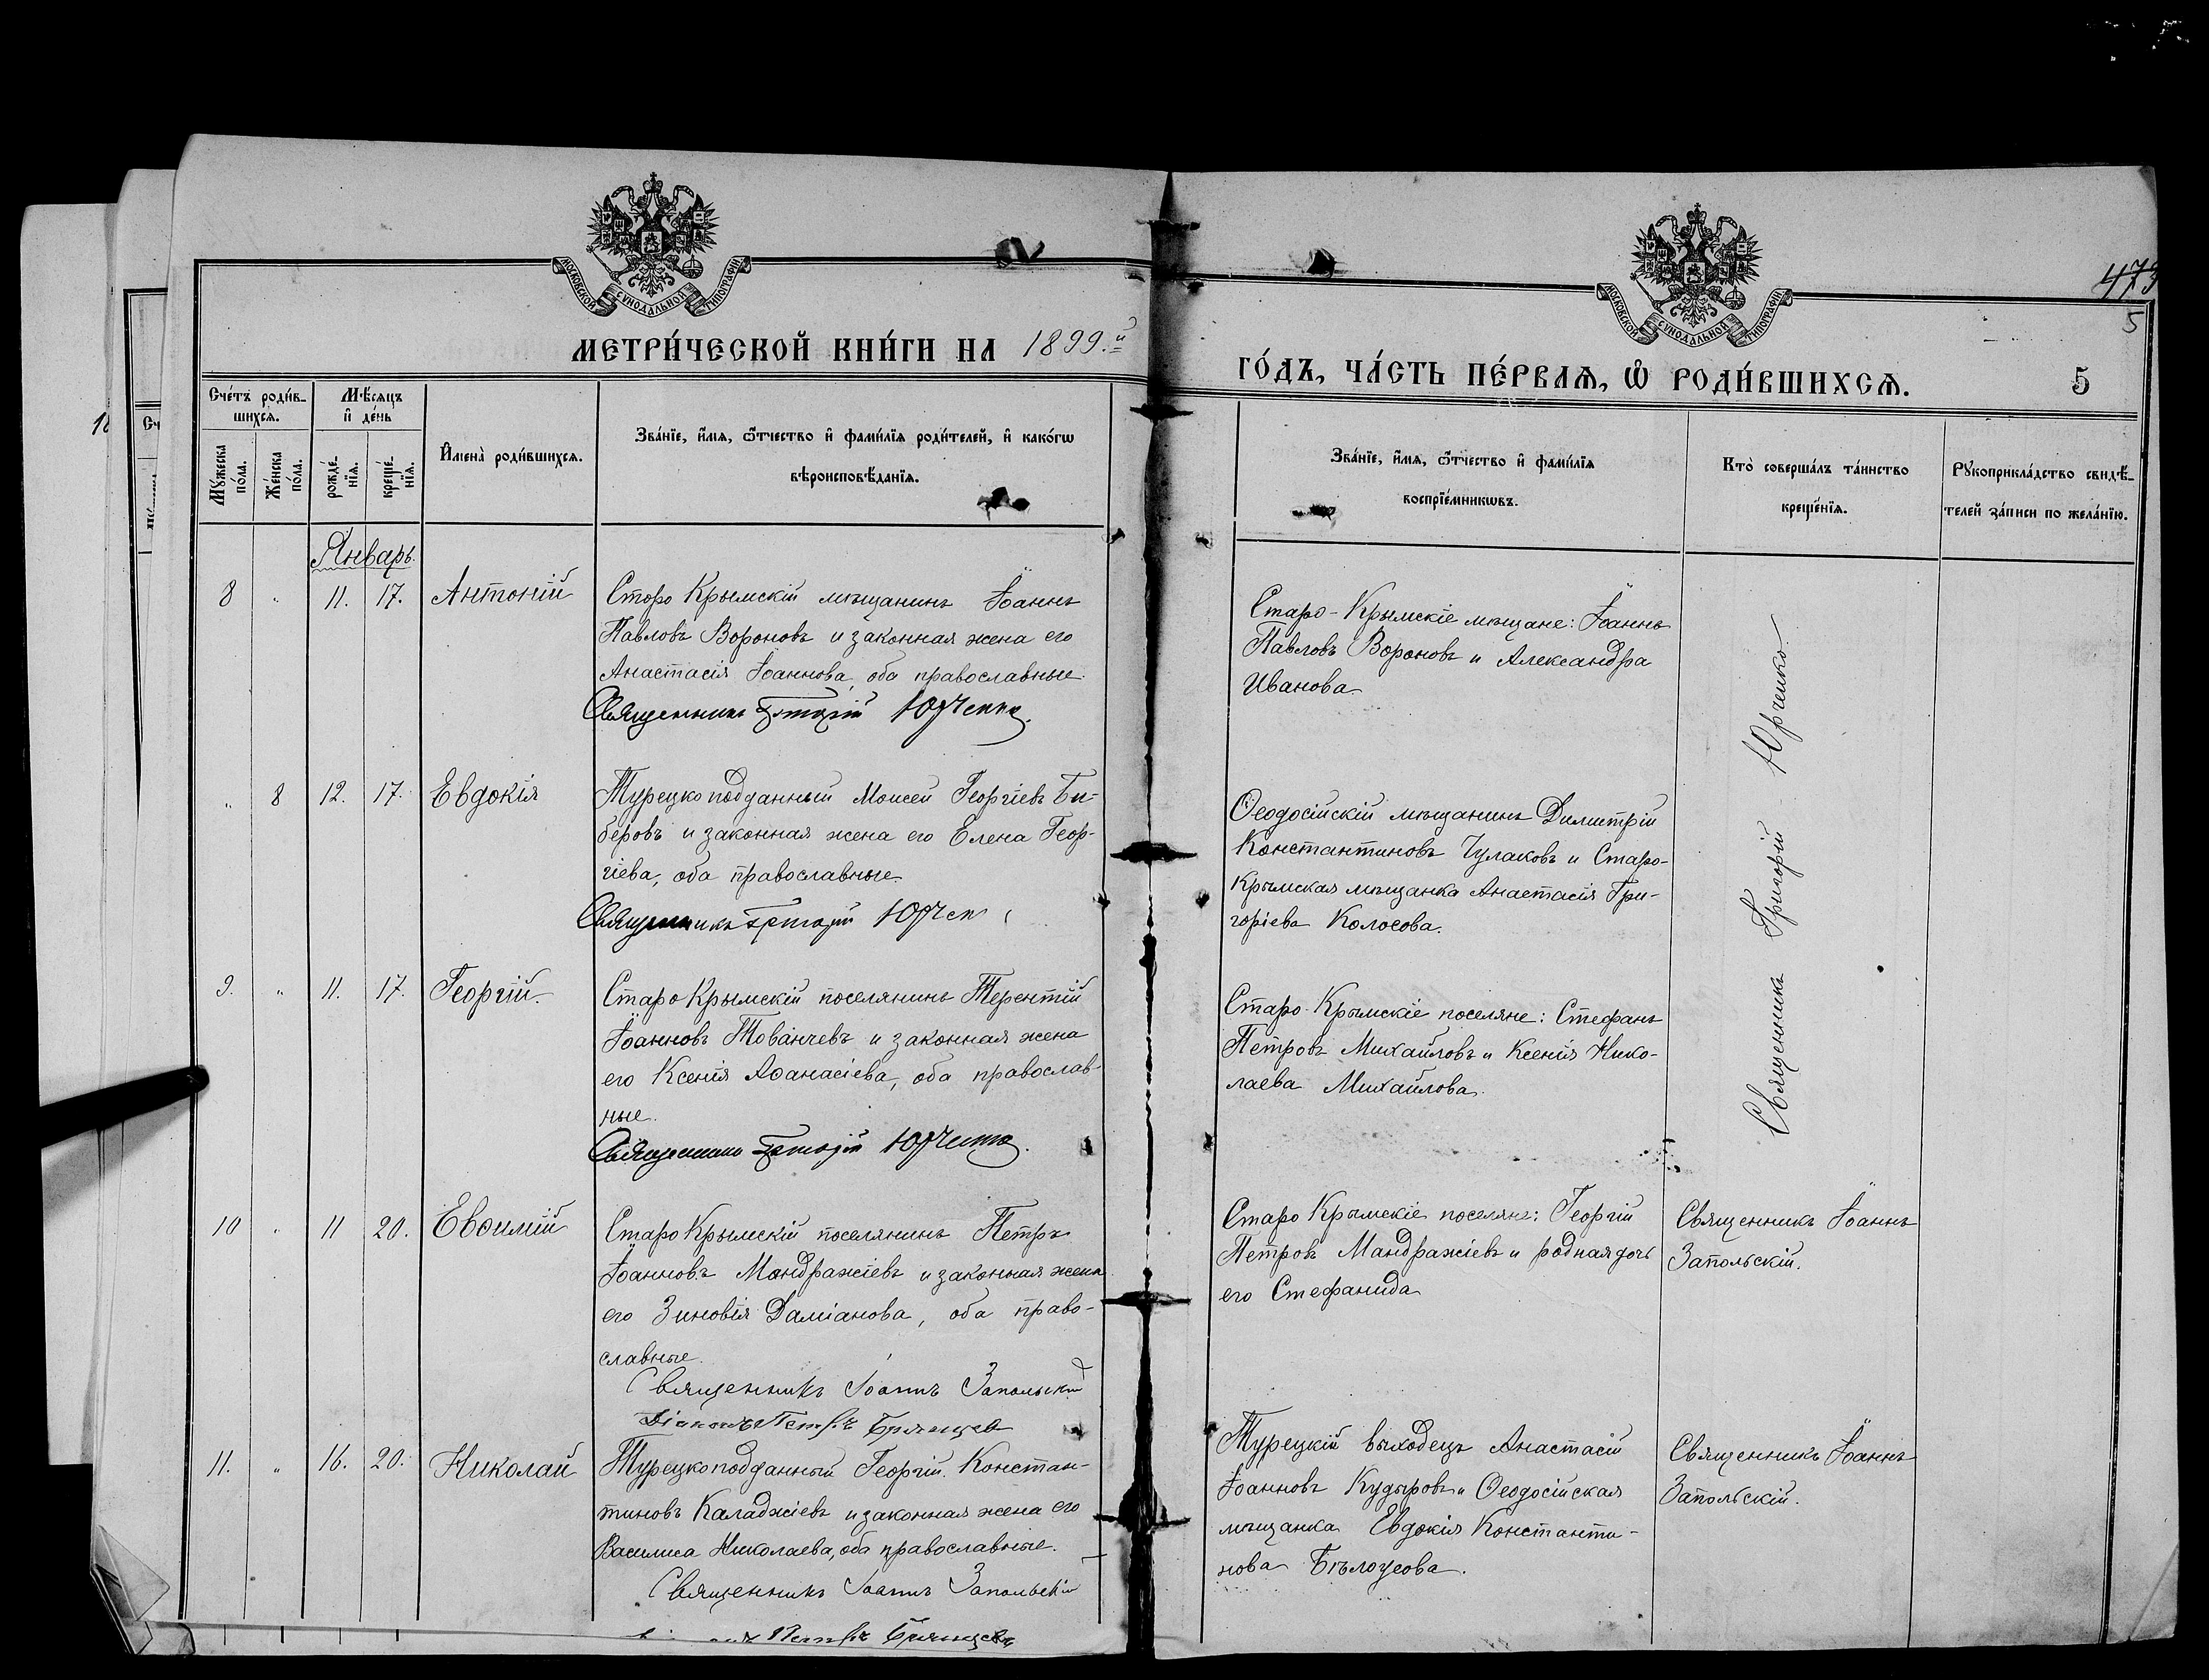 473
5
МОСКОВСКОЙ СУНОДАЛЬНОЙ ТИПОГРАФІИ
МОСКОВСКОЙ СУНОДАЛЬНОЙ ТИПОГРАФІИ
МЕТРИ́ЧЕСКОЙ КНИ́ГИ НА 1899.й
ГО́ДЪ, ЧА́СТЬ ПЕ́РВАѦ, Ѡ҆ РОДИ́ВШИХСѦ.
5
Сче́тъ роди́в-
шихсѧ.
Мѣ́сѧцъ
и҆ де́нь
Мꙋ́жеска
по́ла.
Же́нска
по́ла.
рожде́-
нїѧ.
креще́-
нїѧ.
И҆мена̀ роди́вшихсѧ.
Зва́нїе, и҆́мѧ, ѻ҆́тчество и҆ фами́лїѧ роди́телей, и҆ како́гѡ
вѣроисповѣ́данїѧ.
Зва́нїе, и҆́мѧ, ѻ҆́тчество и҆ фами́лїѧ
воспрїе́мникѡвъ.
Кто̀ соверша́лъ та́инство
креще́нїѧ.
Рꙋкоприкла́дство свидѣ́-
телей за́писи по жела́нїю.
Январь.
8 " 11. 17. Антоній
Старо Крымскій мѣщанинъ Іоаннъ
Павловъ Вороновъ и законная жена его
Анастасія Іоаннова, оба православные.
Священникъ Григорій Юрченко.
Старо-Крымскіе мѣщане: Іоаннъ
Павловъ Вороновъ и Александра
Иванова.
Священникъ Григорій Юрченко
" 8 12. 17. Евдокія
Турецкоподданный Моисей Георгіевъ Би-
беровъ и законная жена его Елена Геор-
гіева, оба православные.
Священникъ Григорій Юрчен
Ѳеодосійскій мѣщанинъ Димитрій
Константиновъ Чулаковъ и Старо-
Крымская мѣщанка Анастасія Гри-
горіева Колосова.
9. " 11. 17. Георгій.
Старо Крымскій поселянинъ Терентій
Іоанновъ Тованчевъ и законная жена
его Ксенія Аѳанасіева, оба православ-
ные.
Священникъ Григорій Юрченко.
Старо-Крымскіе поселяне: Стефанъ
Петровъ Михайловъ и Ксенія Нико-
лаева Михайлова.
10 " 11 20. Евѳимій
Старо Крымскій поселянинъ Петръ
Іоанновъ Мандражіевъ и законная жена
его Зиновія Даміанова, оба право-
славные.
Священникъ Іоаннъ Запольскій
Діаконъ Петръ Брянцев
Старо Крымскіе поселяне: Георгій
Петровъ Мандражіевъ и родная дочь
его Стефанида
Священникъ Іоаннъ
Запольскій.
11. " 16. 20. Николай
Турецкоподданный Георгій Констан-
тиновъ Каладжіевъ и законная жена его
Василиса Николаева, оба православные.
Священникъ Іоаннъ Запольскій
Петръ Брянцевъ
Турецкій выходецъ Анастасій
Іоанновъ Кудыровъ и Ѳеодосійская
мѣщанка Евдокія Константи-
нова Бѣлоусова.
Священникъ Іоаннъ
Запольскій.